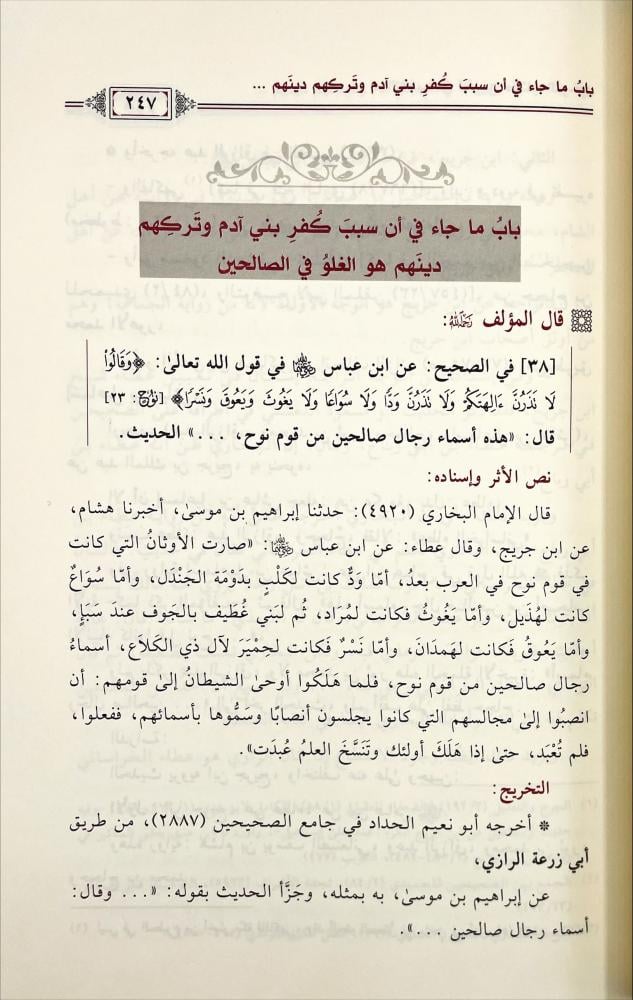 بابُ ما جاء في أن سببَ كُفرِ بني آدم وتَركِهم دينَهم ...
٢٤٧
بابُ ما جاء في أن سببَ كُفرِ بني آدم وتَركِهم
دينَهم هو الغلوُ في الصالحين
قال المؤلف رَحِمَهُ اللَّهُ:
[٣٨] في الصحيح: عن ابن عباس رضي الله عنهما في قول الله تعالىٰ: ﴿وَقَالُوا۟
لَا تَذَرُنَّ ءَالِهَتَكُمْ وَلَا تَذَرُنَّ وَدًّا وَلَا سُوَاعًا وَلَا يَغُوثَ وَيَعُوقَ وَنَسْرًا﴾ [نُوح: ٢٣]
قال: «هذه أسماء رجال صالحين من قوم نوح، ...» الحديث.
نص الأثر وإسناده:
قال الإمام البخاري (٤٩٢٠): حدثنا إبراهيم بن موسىٰ، أخبرنا هشام،
عن ابن جريج، وقال عطاء: عن ابن عباس رضي الله عنهما: «صارت الأوثانُ التي كانت
في قوم نوح في العرب بعدُ، أمّا وَدٌّ كانت لكَلْبٍ بدَوْمَة الجَنْدَل، وأمّا سُوَاعٌ
كانت لهُذَيل، وأمّا يَغُوثُ فكانت لمُرَاد، ثُم لبَني غُطَيف بالجَوف عندَ سَبَإٍ،
وأمّا يَعُوقُ فكانت لهَمدَانَ، وأمّا نَسْرٌ فكانت لحِمْيَرَ لآل ذي الكَلَاع، أسماءُ
رجال صالحين من قوم نوح، فلما هَلَكُوا أوحىٰ الشيطانُ إلىٰ قومهم: أن
انصبُوا إلىٰ مجالسهم التي كانوا يجلسون أنصابًا وسَمُّوها بأسمائهم، ففعلوا،
فلم تُعْبَد، حتىٰ إذا هَلَكَ أولئك وتَنَسَّخَ العلمُ عُبدَت».
التخريج:
* أخرجه أبو نعيم الحداد في جامع الصحيحين (٢٨٨٧)، من طريق
أبي زرعة الرازي،
عن إبراهيم بن موسىٰ، به بمثله، وجَزَّأ الحديث بقوله: «... وقال:
أسماء رجال صالحين ...».